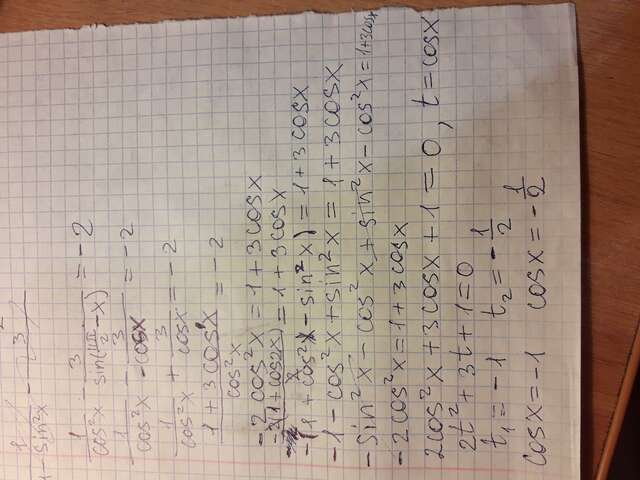 1/cos²x - 3/sin(11π/2 - x) = -2
1/cos²x - 3/-cosx = -2
1/cos²x + 3/cosx = -2
1+3cosx/cos²x = -2
-2cos²x = 1+3cosx
-2(1+cos2x) = 1+3cosx
-(1+cos²x - sin²x) = 1+3cosx
-1 - cos²x + sin²x = 1+3cosx
-sin²x - cos²x + sin²x - cos²x = 1+3cosx
-2cos²x = 1+3cosx
2cos²x + 3cosx + 1 = 0, t = cosx
2t² + 3t + 1 = 0
t₁ = -1 t₂ = -1/2
cosx = -1 cosx = -1/2